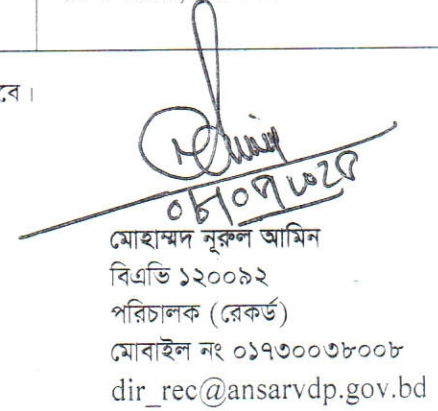 বে।
মোহাম্মদ নূরুল আমিন
বিএভি ১২০০৯২
পরিচালক (রেকর্ড)
মোবাইল নং ০১৭৩০০৩৮০০৮
dir_rec@ansarvdp.gov.bd